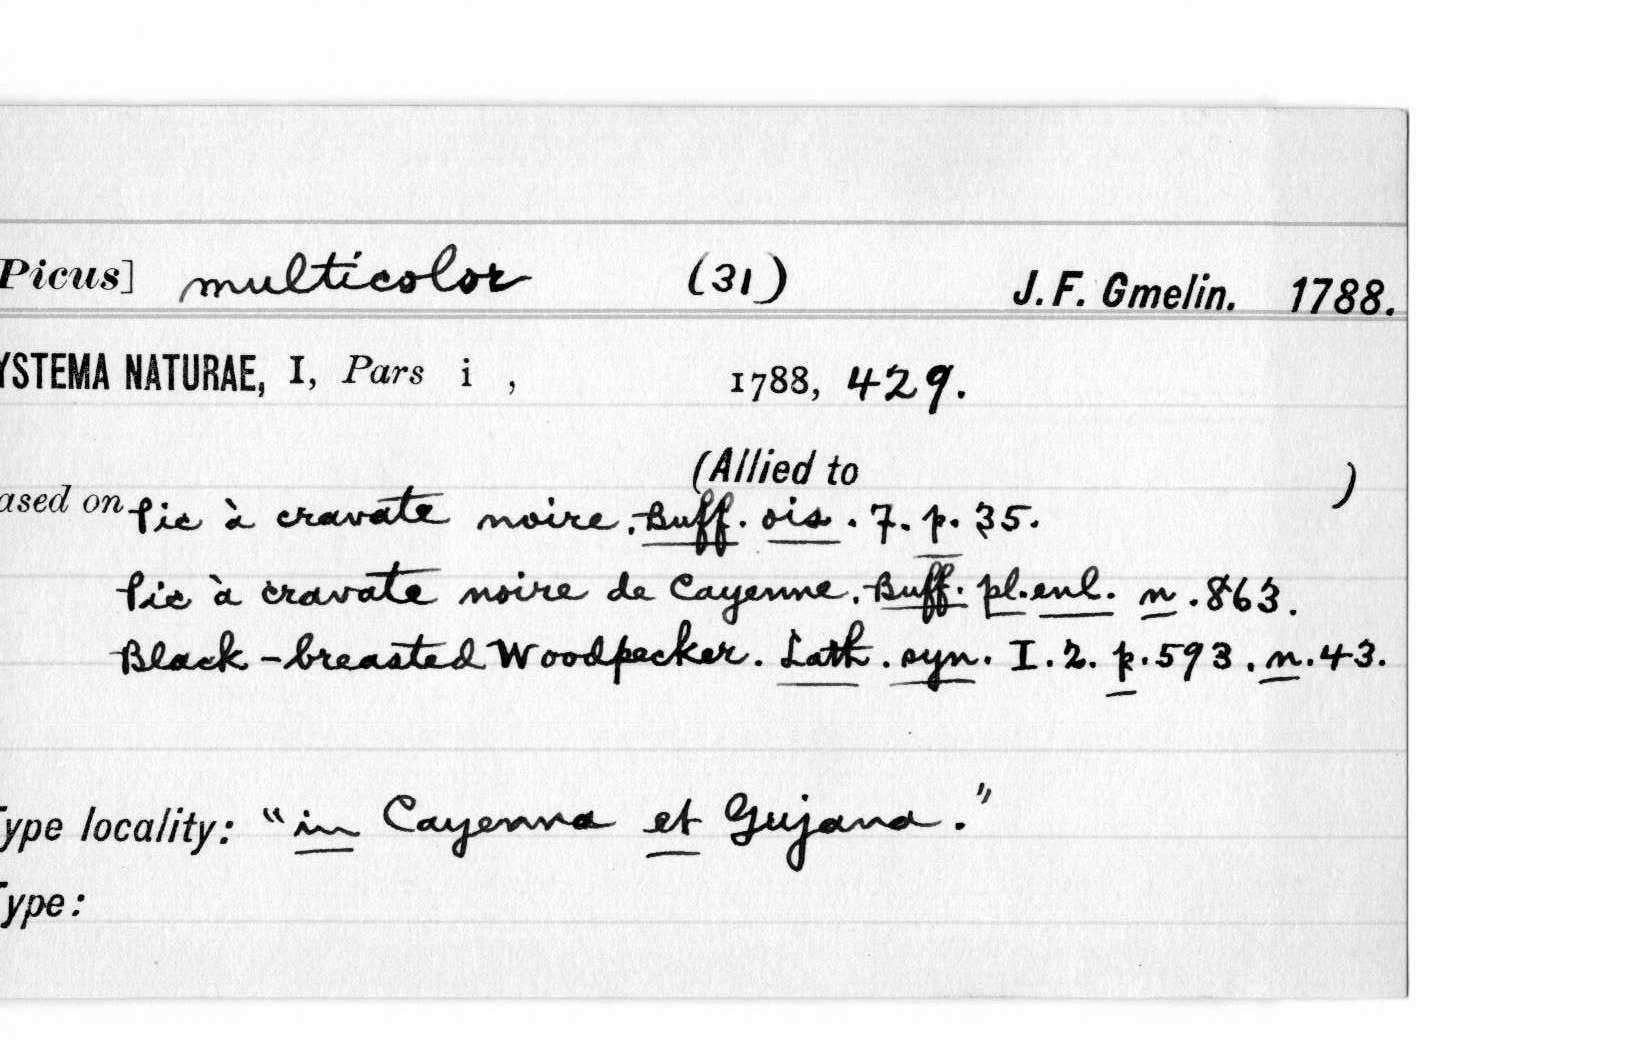 Picus] multicolor (31) J. F. Gmelin. 1788.
YSTEMA NATURAE, I, Pars i , 1788, 429.
(Allied to )
ased on Pic à cravate noire. Buff. ois. 7. p. 35.
Pic à cravate noire de Cayenne. Buff. pl. enl. n. 863.
Black-breasted Woodpecker. Lath. syn. I. 2. p. 593. n. 43.
Type locality: "in Cayenna et Gujana."
Type: